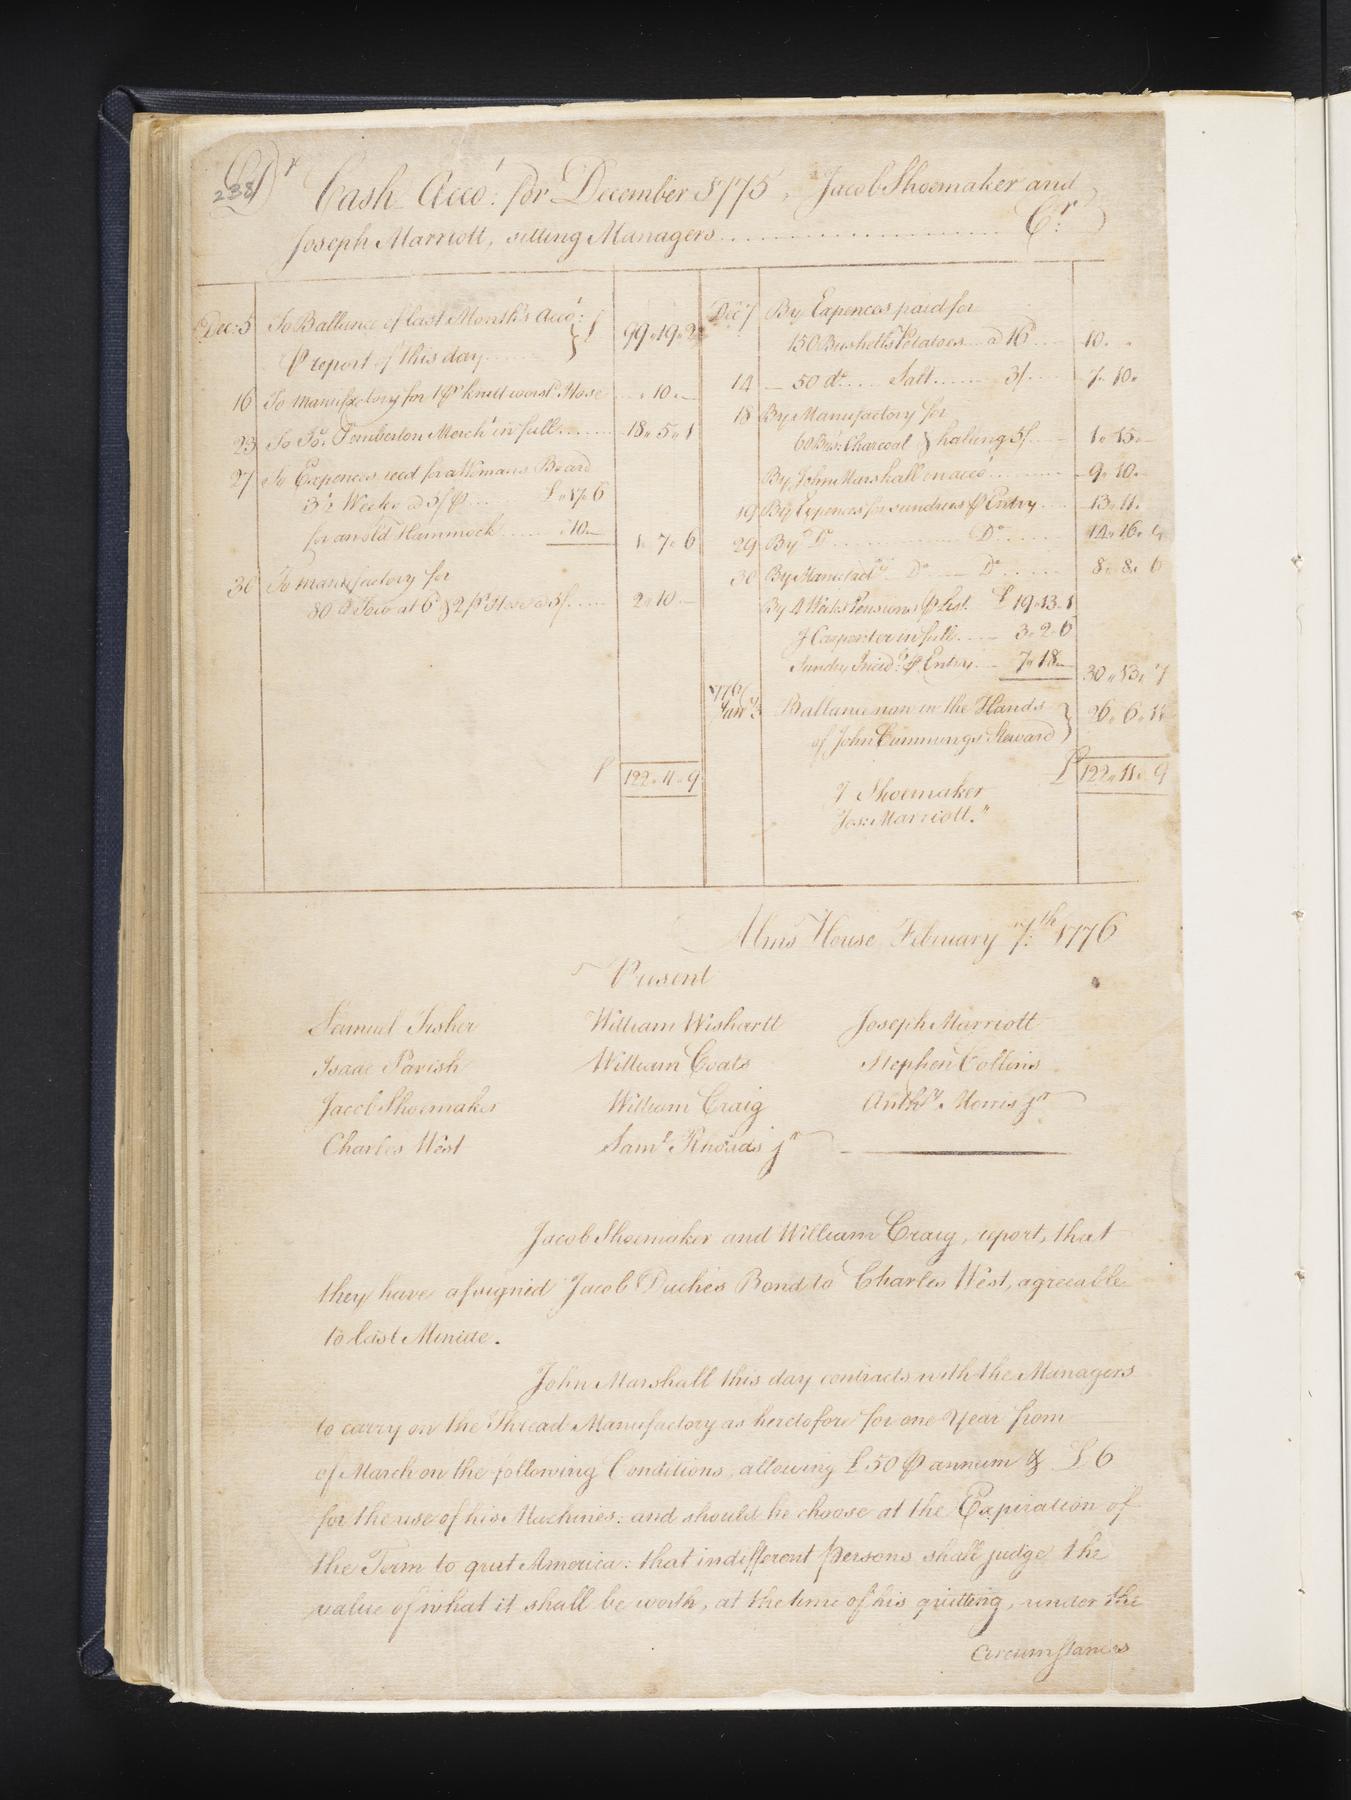 238
Dr Cash Acco.t for December 1775, Jacob Shoemaker and
Joseph Marriott, sitting Managers.................... C.r
Dec: 5 To Ballance of last Month's Acco.t
P report of this day...... £ 99.19.2
16 To manufactory for 1 P knitt worst.d Hose .... " 10.—
23 To Jos. Pemberton Merch.t in full...... 18.5.1
27 To Expences recd for a Womans Board
3½ Weeks @ 5/ P.... £ " 17.6
for an old Hammock...... " 10.—
1. 7. 6
30 To manufactory for
80 lb Tow at 6d & 2 pr Hose @ 5/..... 2.10.—
£ 122.11.9
Dec 7 By Expences paid for
150 Bushells Potatoes.... a 16d.... 10. .
14 — 50 do..... Salt....... 3/...... 7. 10.
18 By Manufactory for
60 Bus: Charcoal } haling 5/.... 1.15.—
By John Marshall on acco........... 9.10.—
19 By Expences for sundries P Entry.... 13.11.
29 By Do................. Do...... 14.16.
30 By Manufact.y Do..... Do...... 8.8.6
By 4 Weeks Pensions P List. £ 19.13.1
J Carpenter in full..... 3.2.6
Sundry Incid.s P Entry.... 7.18.—
30.13.7
1776
Jan.y 3 Ballance now in the Hands
of John Cummings Steward 26.6.11
£ 122.11.9
J Shoemaker
Jos: Marriott."
Alms House February 7:th 1776
Present
Samuel Fisher William Wishartt Joseph Marriott
Isaac Parish William Coats Stephen Collins
Jacob Shoemaker William Craig Anth.y Morris jr
Charles West Sam.l Rhoads jr
Jacob Shoemaker and William Craig, report, that
they have assigned Jacob Duchés Bond to Charles West, agreeable
to last Minute.
John Marshall this day contracts with the Managers
to carry on the Thread Manufactory as heretofore for one Year from
of March on the following Conditions, allowing £50 P annum & £6
for the use of his Machines: and should he choose at the Expiration of
the Term to quit America: that indifferent persons shall judge the
value of what it shall be worth, at the time of his quitting, under the
Circumstances